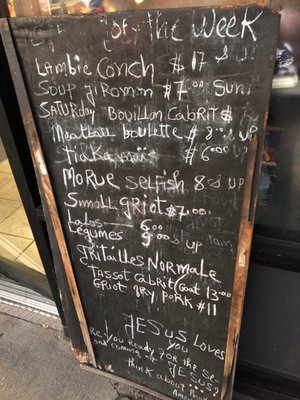 of the Week
Lambie Conch $17 & up
Soup JiRomon $7.00 Sun
Saturday Bouillon Cabrit $7
Meatball boulette $8.00 up
$6.00
Morue selfish 8.00 up
Small griot $7.00
Lalos 6.00
Legumes 9.00 & up
gritailles Normale
Tassot Cabrit/Goat 13.00
Griot Fry Pork #11
Jesus Loves
you
Are you Ready For the Se
cond coming of Jesus?
think about